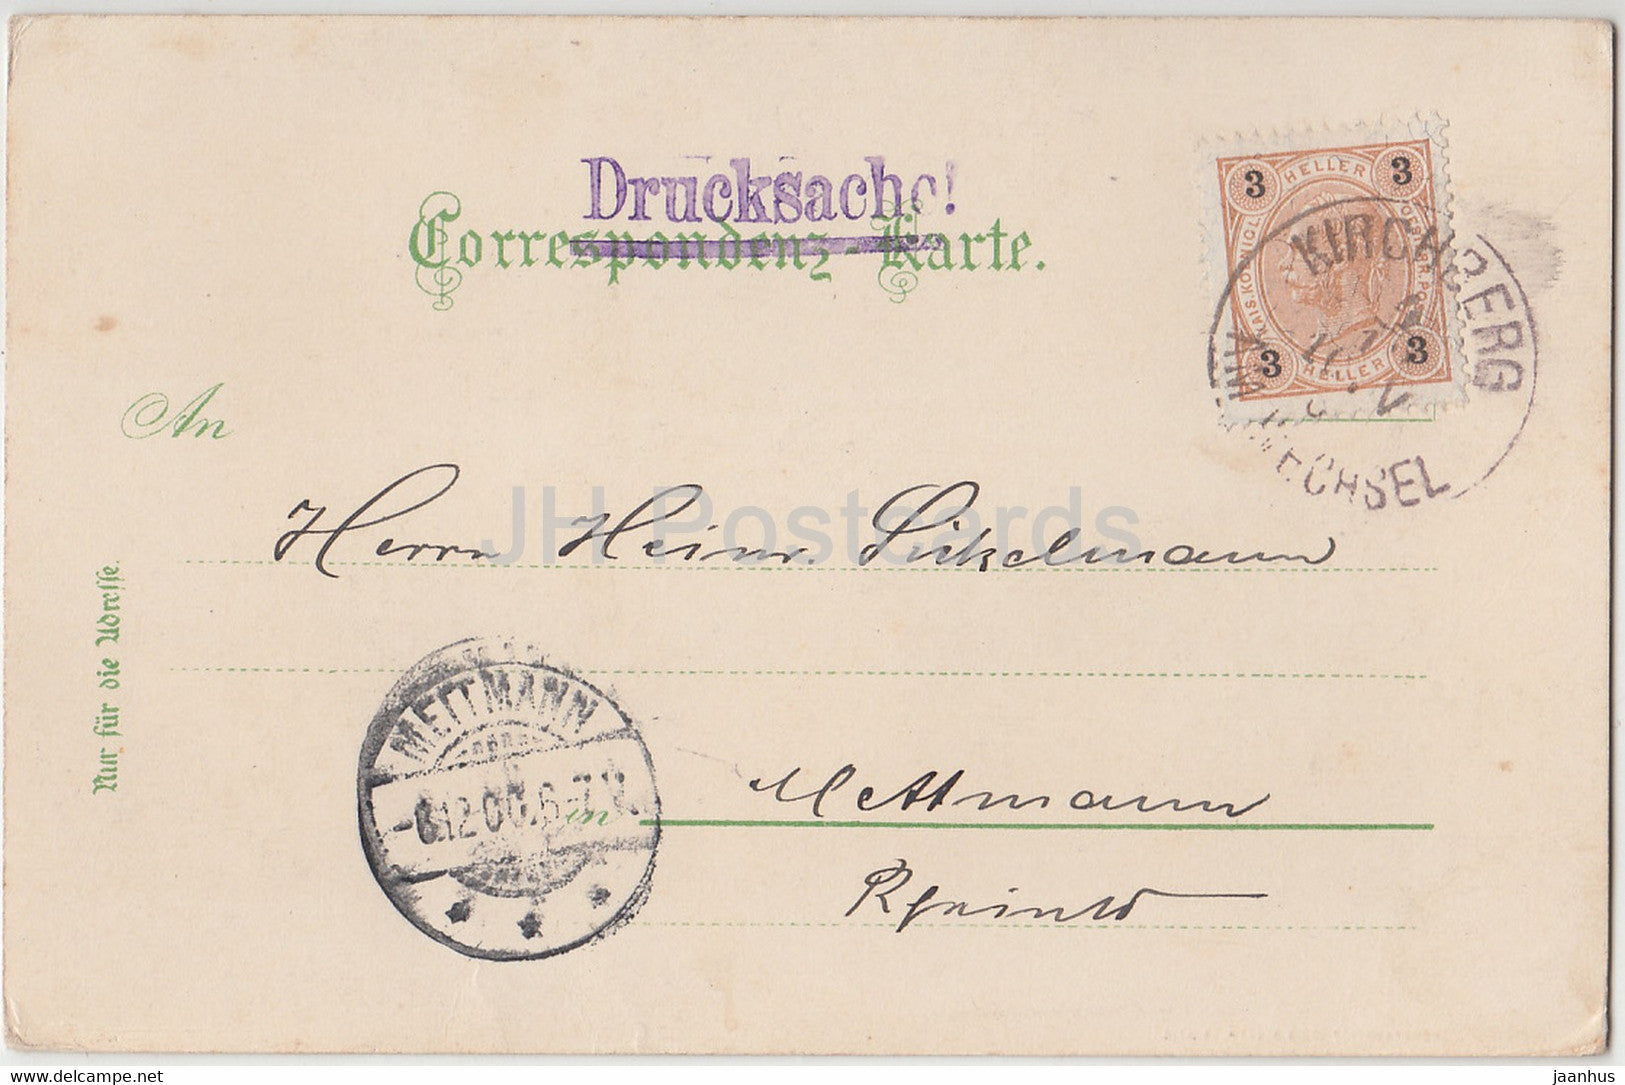 Drucksache!
Correspondenz-Karte.
HELLER
3 3
KAIS. KÖNIGL.
3 3
HELLER
KIRCHBERG
AM WECHSEL
An
Herrn Heinr.
Nur für die Adresse.
METTMANN
-8.12.00.6-7.N.
in Mettmann
Rheinld
JH Postcards
https://www.delcampe.net
jaanhus